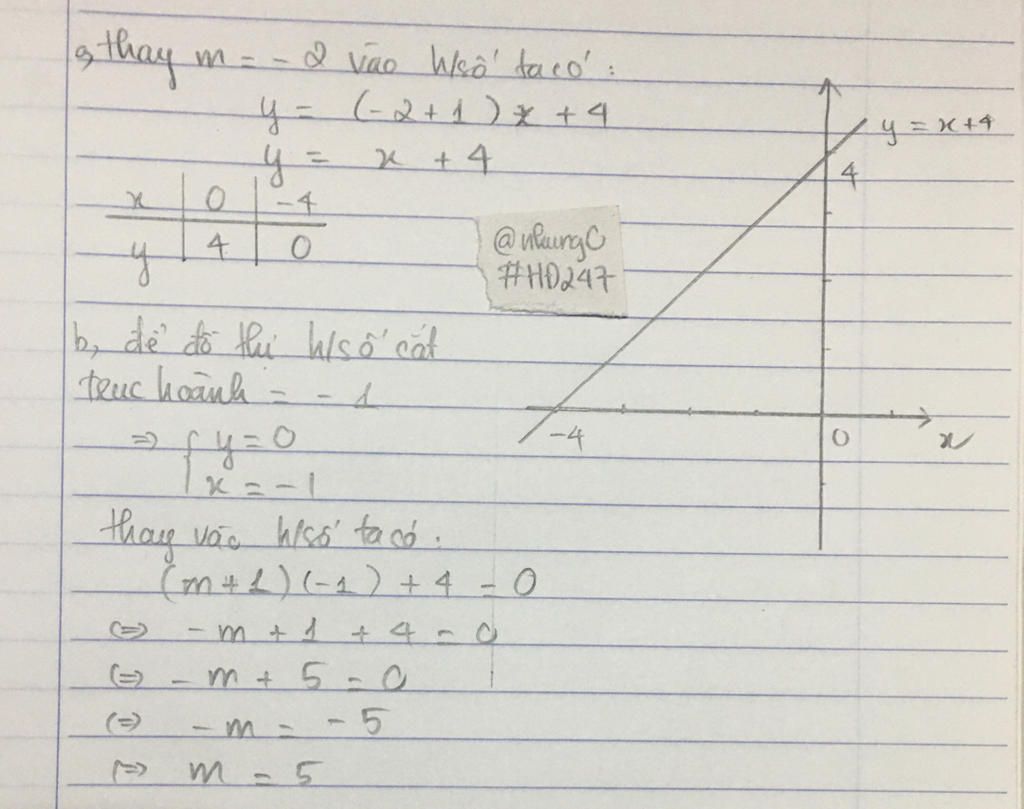 a, thay m = - 2 vào h/số ta có :
y = (-2+1) x + 4
y = x + 4
x 0 -4
y 4 0
b, để đồ thị h/số cắt
trục hoành = - 1
=> { y = 0
x = -1
thay vào h/số ta có :
(m+1) (-1) + 4 = 0
<=> - m + 1 + 4 = 0
<=> - m + 5 = 0
<=> - m = - 5
<=> m = 5
@nhungC
#HD247
y = x+4
4
-4
0
x